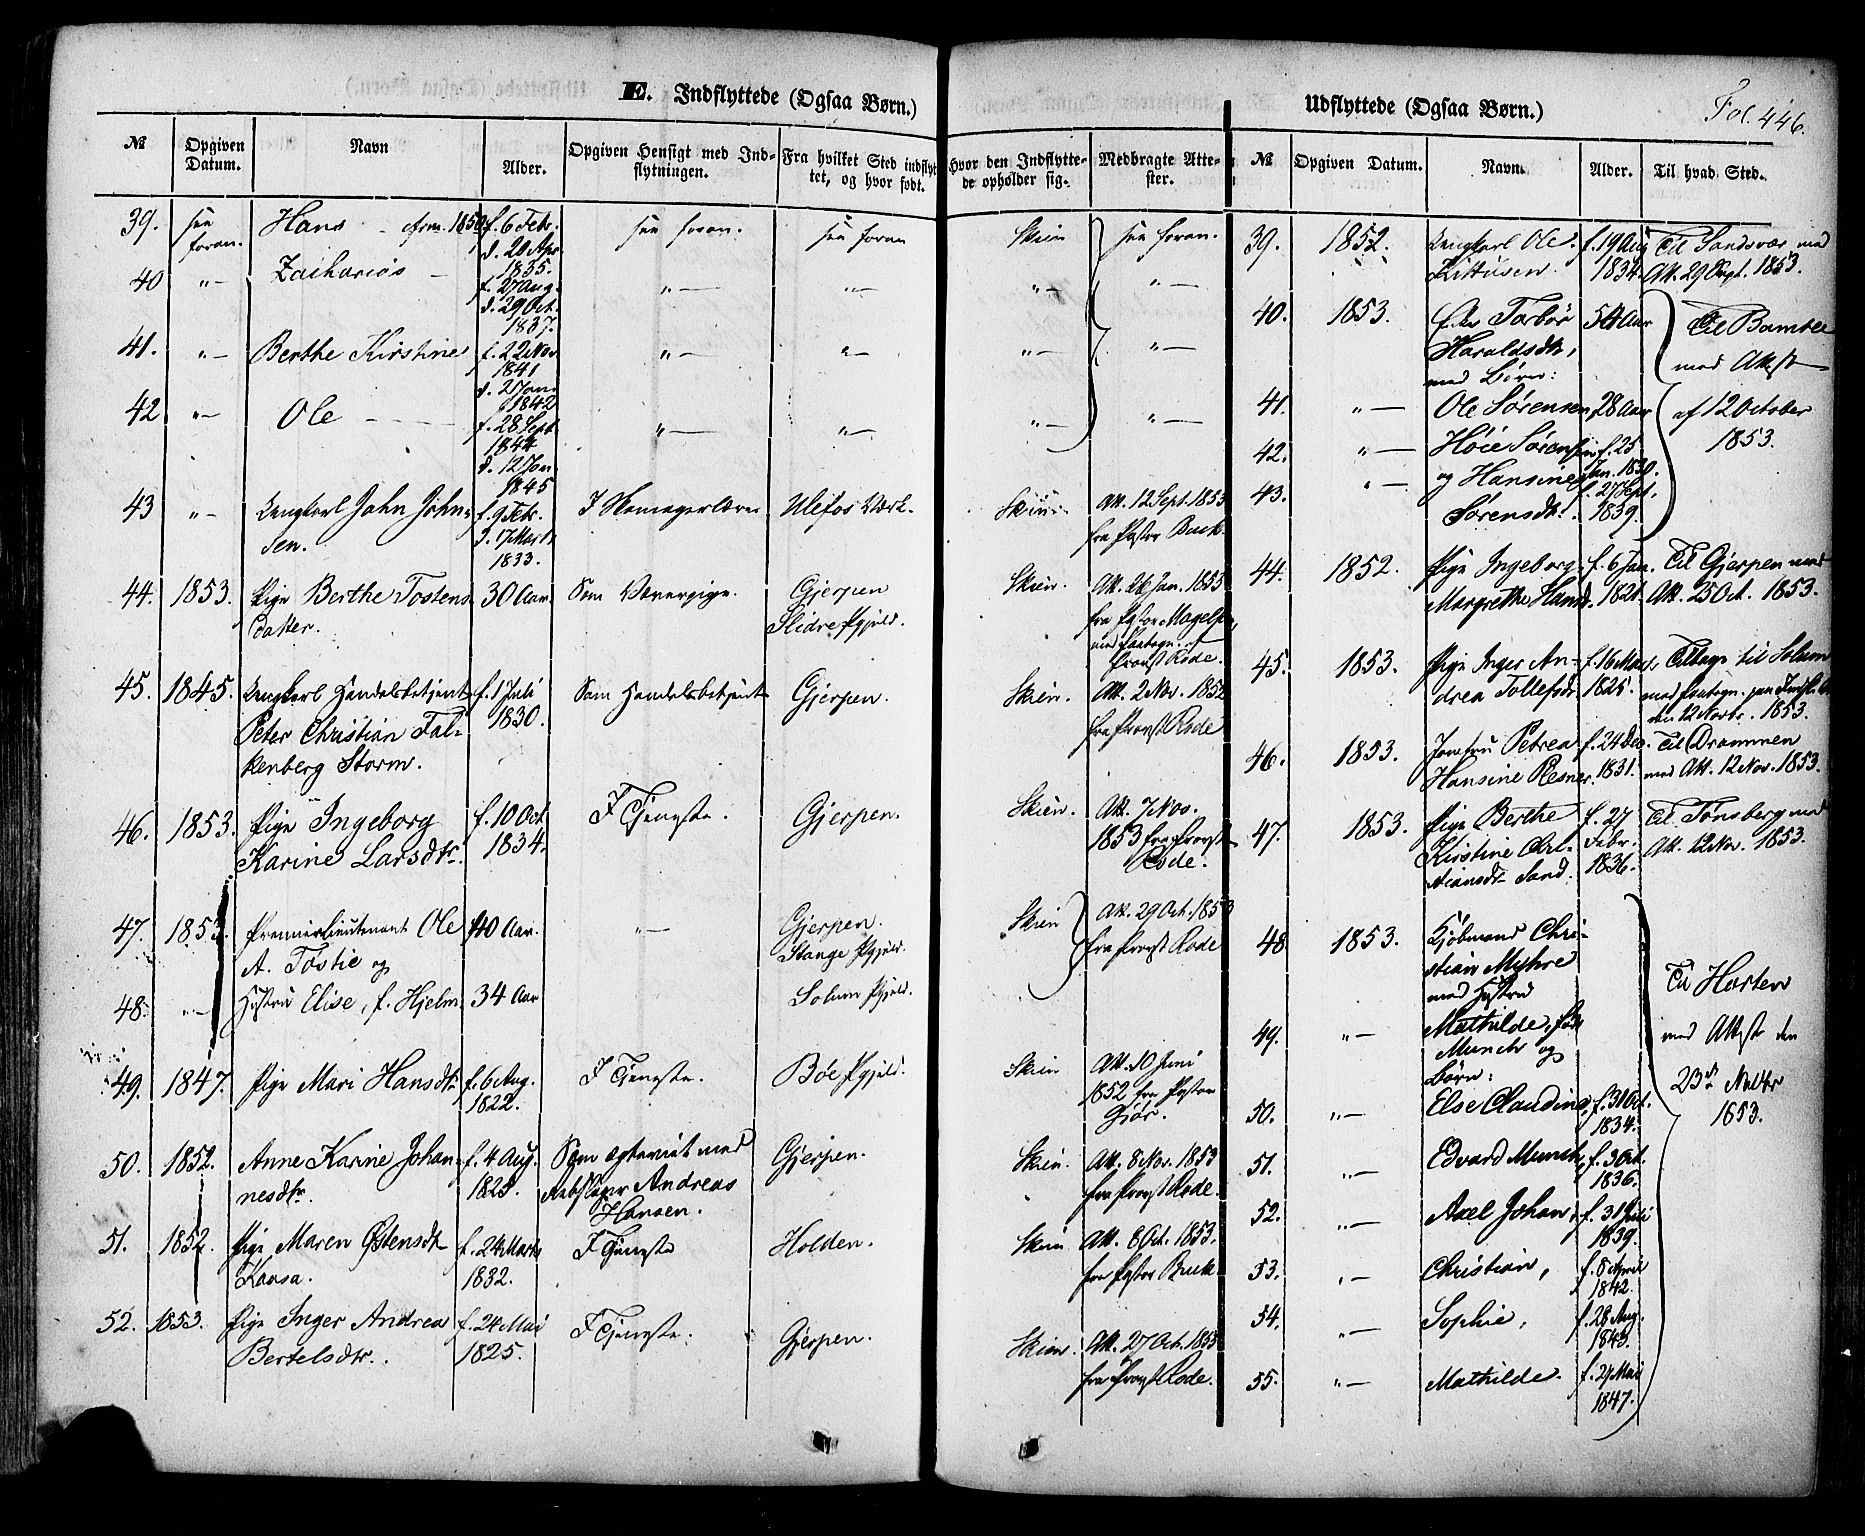 E. Indflyttede (Ogsaa Børn.)
№
Opgiven Datum.
Navn
Alder.
Opgiven Hensigt med Ind-
flytningen.
Fra hvilket Sted indflyt
tet, og hvor født.
Hvor den Indflytte-
de opholder sig.
Medbragte Atte-
ster.
39. see foran. Hans f. 6 Febr. see foran. see foran Skien see foran.
d. 20 Apr.
1835.
40 "— Zacharias — f. 27 Aug. "— "— "— "—
d. 29 Oct.
1837.
41. "— Berthe Kirstine f. 22 Nov "— "— "— "—
1841
d. 2 Jan.
1842
42 "— Ole f. 28 Sept "— "— "— "—
1844
d. 12 Jan.
1845
43 "— Ungkarl John John- f. 9 Febr. Ulefos Værk. Skien. Att. 12 Sept. 1853
sen. d. 17 Marts fra Pastor Buck.
1833.
44. 1853. Pige Berthe Tostens 30 Aar. Gjerpen Skien. Att. 26 Jan. 1853
datter. Slidre Pgjeld. fra Pastor
med Paategn. af
Provst Rode.
45. 1845. Ungkarl Handelsbetjent f. 1 Juli Som Handelsbetjent Gjerpen. Skien. Att. 2 Nov. 1852
Peter Christian Fal- 1830. fra Provst Rode
kenberg Storm.
46. 1853. Pige Ingeborg f. 10 Oct I Tjeneste. Gjerpen. Skien. Att. 7 Nov.
Karine Larsdtr. 1834. 1853 fra Provst
Rode.
47. 1853. Premierlieutenant Ole 40 Aar. "— Gjerpen. Skien Att. 29 Oct. 1853
A. Tostie og Stange Pgjeld. fra Provst Rode
48. "— Hustru Elise, f. Hjelm 34 Aar Solum Pgjeld.
49. 1847. Pige Mari Hansdtr. f. 6 Aug. I Tjeneste. Bøe Pgjeld. Skien Att. 10 Juni
1822. 1852 fra Pastor
Gjør.
50. 1852. Anne Karine Johan- f. 4 Aug. Som egteviet med Gjerpen. Skien. Att. 8 Nov. 1853
nesdtr. 1825. Rebslager Andreas fra Provst Rode.
Hansen.
51. 1852. Pige Maren Østensdtr f. 24 Marts I Tjeneste Holden. Skien Att. 8 Oct. 1853.
Kaasa. 1832. fra Pastor Buck
52. 1853. Pige Inger Andrea f. 24 Mai I Tjeneste. Gjerpen. Skien. Att. 27 Oct. 1853
Bertelsdtr. 1825. fra Provst Rode.
Udflyttede (Ogsaa Børn.)
Fol. 446.
№ Opgiven Datum. Navn. Alder. Til hvad Sted.
39. 1852. Ungkarl Ole f. 19 Aug Til Sandsvær med
1834. Att. 29 Sept. 1853.
40. 1853. Enke Torbør 54 Aar Til Bamble
Haraldsdtr, med Attest
med Børn:
41. "— Ole Sørensen, 28 Aar af 12 October
1853.
42. "— Høie Sørensen f. 25
Jan. 1830.
43. "— og Hansine f. 27 Sept.
Sørensdtr. 1839.
44. 1852. Pige Ingeborg f. 6 Jan. Til Gjerpen med
Margrethe Hansd. 1821. Att. 25 Oct. 1853.
45. 1853. Pige Inger An- f. 16 Mai Tilbage til Solum
drea Tollefsdr. 1825. med Paategn.
den 12 Novbr. 1853.
46. 1853. Jomfru Petrea f. 24 Dec. Til Drammen
Hansine Resner. 1831. med Att. 12 Nov. 1853.
47. 1853. Pige Berthe f. 27 Til Tønsberg med
Kirstine Chri- Febr. Att. 12 Nov. 1853.
stiansdtr Sand. 1836.
48 1853. Kjøbmand Chri-
stian Myhre
med Hustru
49. "— Mathilde, född
Munch og
Børn:
Til Horten
med Attest den
23de Novbr
1853.
50. "— Else Claudine, f. 31 Oct.
1834.
51. "— Edvard Munch f. 3 Oct.
1836.
52. "— Axel Johan, f. 31 Juli
1839.
53. "— Christian, f. 8 April
1842.
54. "— Sophie, f. 28 Aug.
1843.
55. "— Mathilde. f. 21 Mai
1847.